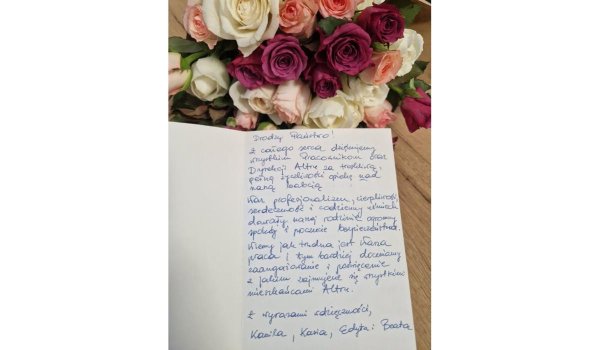 Drodzy Państwo!
Z całego serca dziękujemy
wszystkim Pracownikom oraz
Dyrekcji Altru za troskliwą,
pełną życzliwości opiekę nad
naszą babcią
Wasz profesjonalizm, cierpliwość,
serdeczność i codzienny uśmiech
dawały naszej rodzinie ogromny
spokój i poczucie bezpieczeństwa.
Wiemy jak trudna jest Wasza
praca i tym bardziej doceniamy
zaangażowanie i poświęcenie
z jakim zajmujecie się wszystkimi
mieszkańcami Altru.
Z wyrazami wdzięczności,
Kamila, Kasia, Edyta i Beata